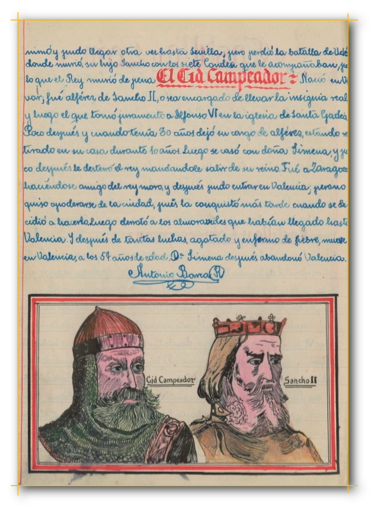 murió y pudo llegar otra vez hasta Sevilla, pero perdió la batalla de
donde murió su hijo Sancho con los siete Condes que le acompañaban, por
lo que el Rey murió de pena El Cid Campeador = Nació en Vi
var, fué alférez de Sancho II, o sea encargado de llevar la insignia real
y luego el que tomó juramento a Alfonso VI en la iglesia de Santa Gadea.
Poco después y cuando tenía 30 años dejó su cargo de alférez, estando re
tirado en su casa durante 10 años luego se casó con doña Jimena, y po
co después le desterró el rey mandandole salir de su reino. Fué a Zaragoza
haciéndose amigo del rey moro y después pudo entrar en Valencia, pero no
quiso apoderarse de la ciudad, pués la conquistó más tarde cuando se de
cidió a hacerla, luego derrotó a los almoravides que habían llegado hasta
Valencia. Y después de tantas luchas, agotado y enfermo de fiebre, muere
en Valencia, a los 57 años de edad. Dª Jimena después abandonó Valencia.
Antonio
Cid Campeador
Sancho II